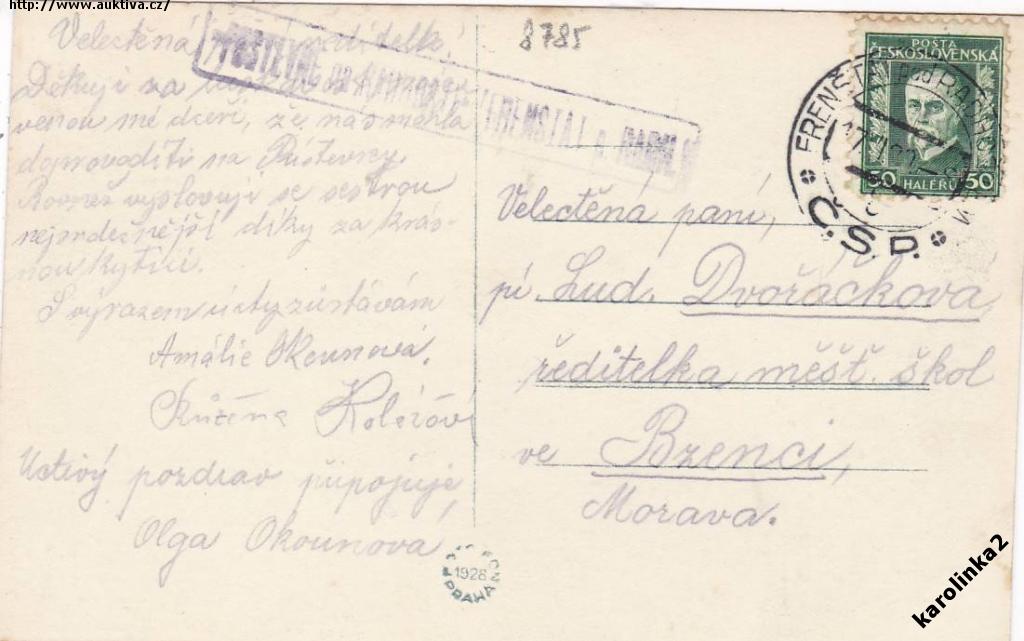 http://www.auktiva.cz/
8785
Velectěná ředitelko!
Děkuji za
venou mé dceři, že nás mohla
doprovoditi na Pústevny.
Rovněž vyslovuji se sestrou
nejsrdečnější díky za krás-
nou kytici.
S výrazem úcty zůstávám
Amálie Okounová.
Růžena Kolářová
Uctivý pozdrav připojuje,
Olga Okounová
PUSTEVNE na FRENŠTÁT p. RADH.
POŠTA
ČESKOSLOVENSKÁ
50 HALÉŘŮ 50
FRENŠTÁT pod RADHOŠTĚM
Č.S.P.
Velectěná paní,
pí. Lud. Dvořáčkova
ředitelka měšť. škol
ve Bzenci,
Morava.
1928
PRAHA
karolinka2